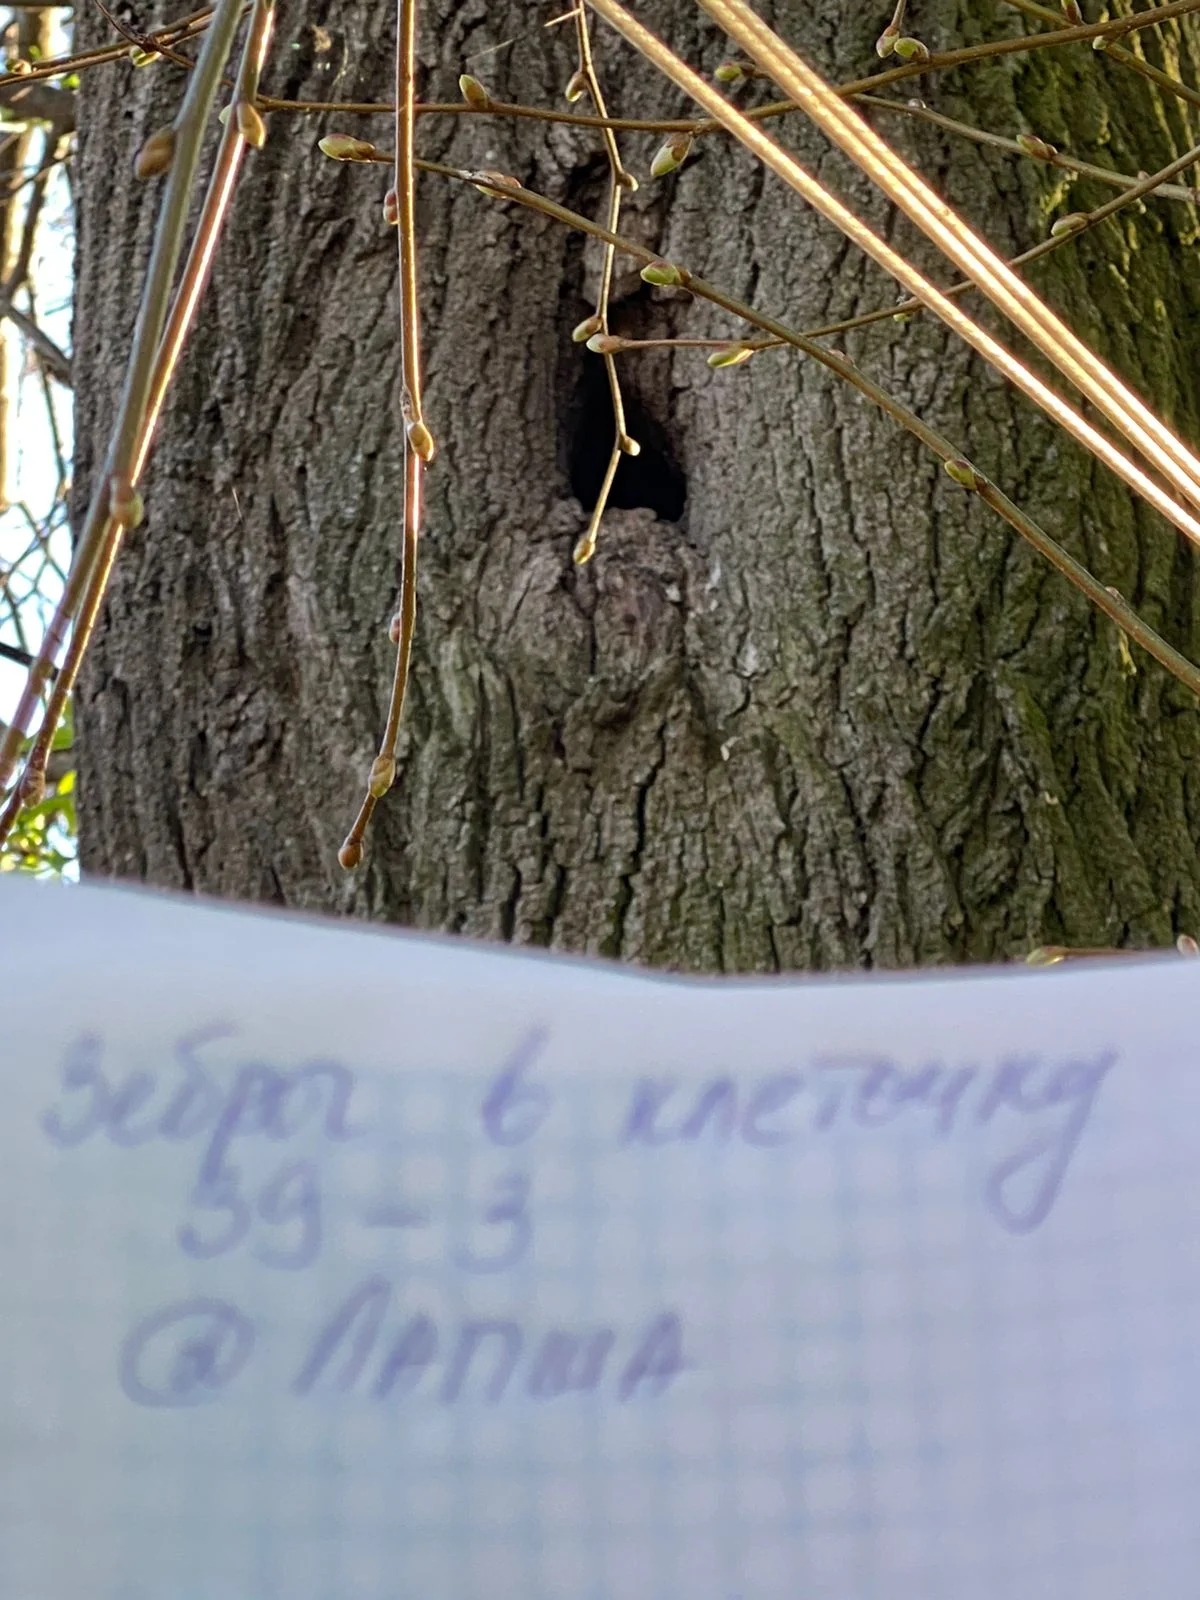 Зебры в клеточку
39-3
@ЛАПША